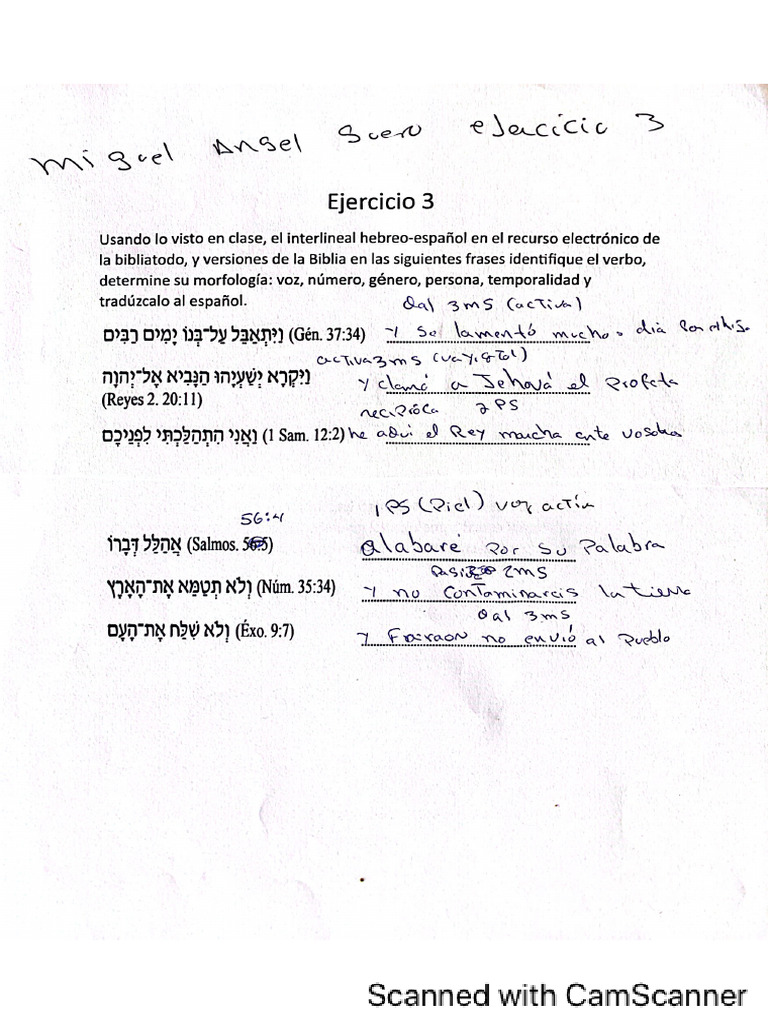 Miguel Angel Suero ejercicio 3
Ejercicio 3
Usando lo visto en clase, el interlineal hebreo-español en el recurso electrónico de
la bibliatodo, y versiones de la Biblia en las siguientes frases identifique el verbo,
determine su morfología: voz, número, género, persona, temporalidad y
tradúzcalo al español.
Qal 3ms (activa)
וַיִּתְאַבֵּל עַל־בְּנוֹ יָמִים רַבִּים (Gén. 37:34) Y se lamentó mucho dia por
activa 3ms (vayiqtol)
וַיִּקְרָא יְשַׁעְיָהוּ הַנָּבִיא אֶל־יְהוָה y clamó a Jehová el Profeta
(Reyes 2. 20:11)
reciproca PS
וַאֲנִי הִתְהַלַּכְתִּי לִפְנֵיכֶם (1 Sam. 12:2) he aqui el Rey marcha ante
1PS (Piel) voz
56:4
אֲהַלֵּל דְּבָרוֹ (Salmos. alabaré por su Palabra
2ms
וְלֹא תְטַמֵּא אֶת־הָאָרֶץ (Núm. 35:34) Y no contaminareis la tierra
Qal 3ms
וְלֹא שִׁלַּח אֶת־הָעָם (Éxo. 9:7) Y Faraon no envió al Pueblo
Scanned with CamScanner